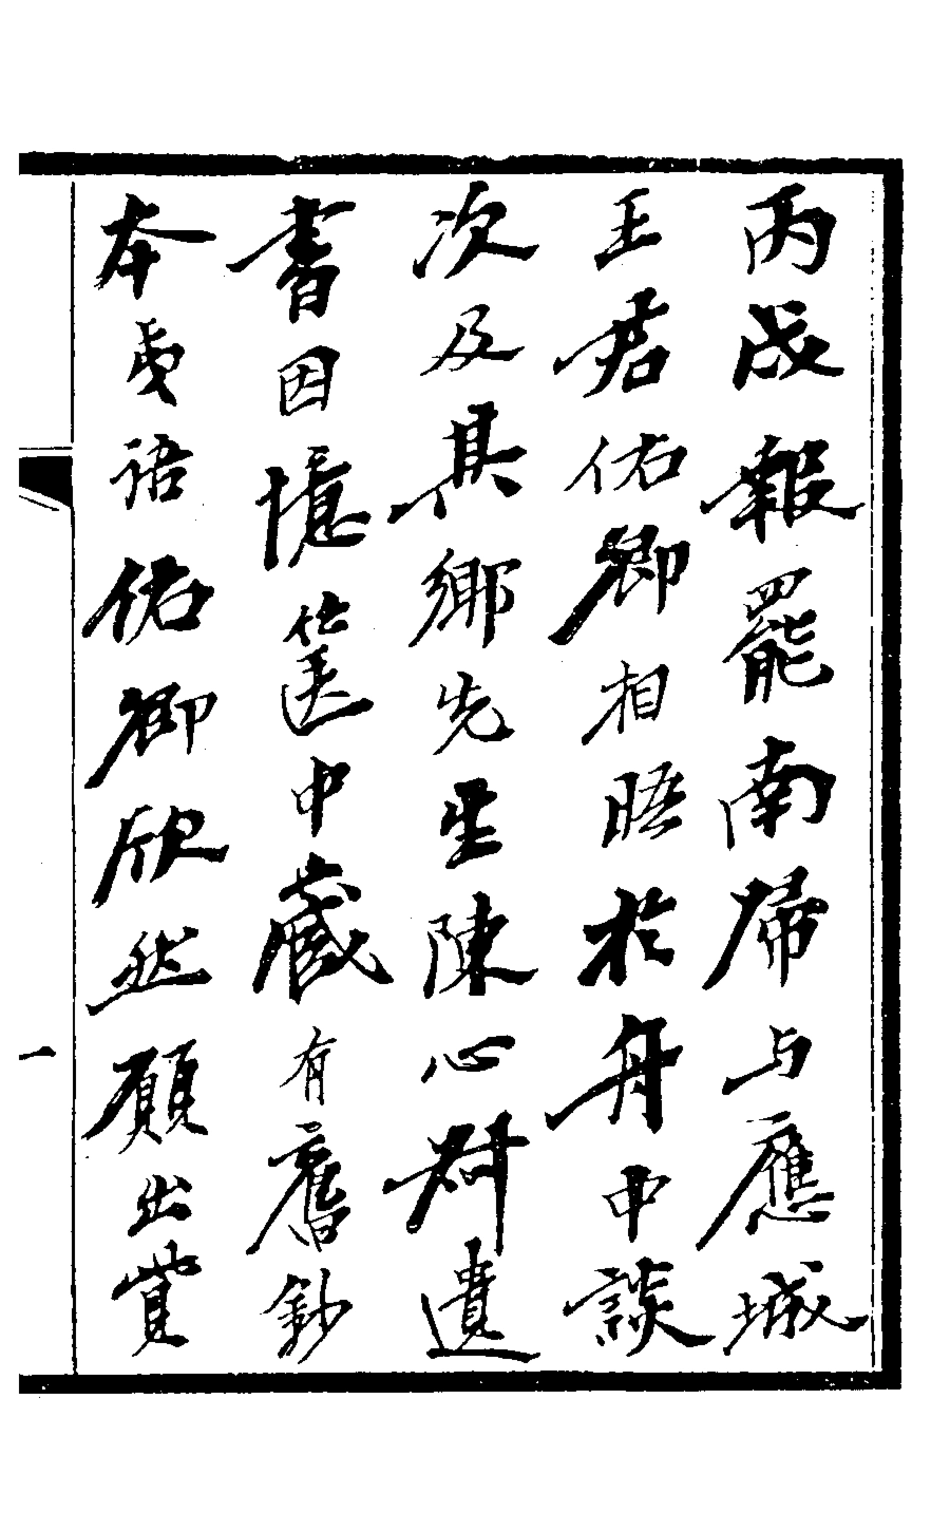 丙戌報罷南歸与應城
王君佑卿相晤於舟中談
次及其鄉先生陳心叔遺
書因憶篋中藏有舊鈔
本爰語佑卿欣然願出貲
一